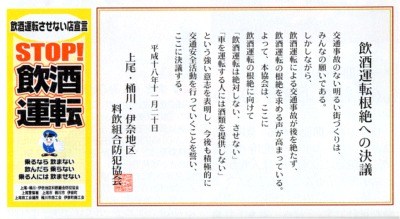 飲酒運転させない店宣言
STOP!
飲酒
運転
乗るなら 飲まない
飲んだら 乗らない
乗る人には 飲ませない
上尾・桶川・伊奈地区料飲組合防犯協会
飲酒運転根絶への決議
交通事故のない明るい街づくりは、
みんなの願いである。
しかしながら、
飲酒運転による交通事故が後を絶たず、
飲酒運転の根絶を求める声が高まっている。
よって、本協会は、ここに
飲酒運転の根絶に向けて
「飲酒運転は絶対しない、させない」
「車を運転する人には酒類を提供しない」
という強い意志を表明し、今後も積極的に
交通安全活動を行っていくことを誓い、
ここに決議する。
平成十八年十一月二十日
上尾・桶川・伊奈地区
料飲組合防犯協会